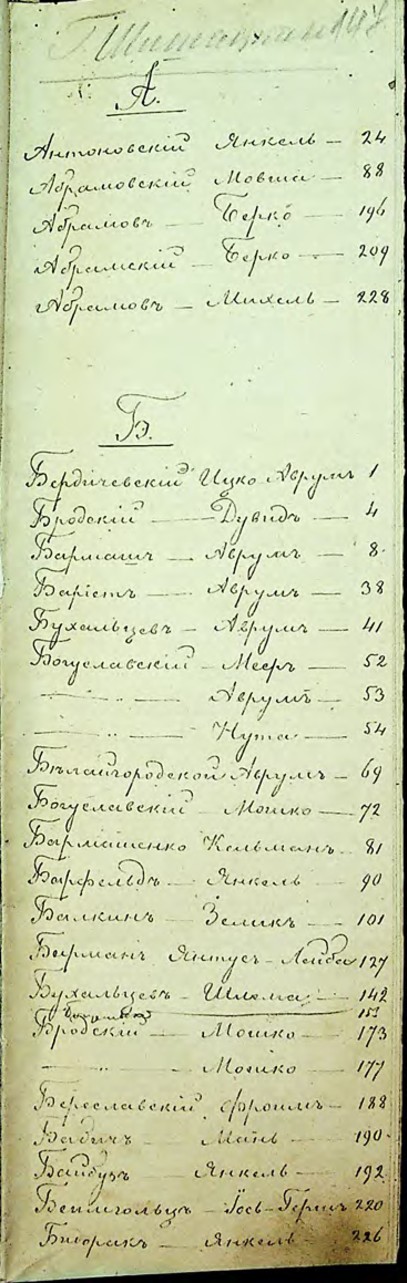 147
А.
Антоновскій Янкель — 24
Абрамовскій Мовша — 88
Абрамовъ — Берко — 196
Абрамскій — Берко — 209
Абрамовъ — Михель — 228
Б.
Бердичевскій Ицко Аврумъ 1
Бродскій — Дувидъ — 4
Бармашъ — Аврумъ — 8
Барістъ — Аврумъ — 38
Бухальцевъ — Аврумъ — 41
Богуславскій — Мееръ — 52
— „ — Аврумъ — 53
— „ — Нута — 54
Бѣлайгородской Аврумъ — 69
Богуславскій Мошко — 72
Бармашенко Кельманъ 81
Барфельдъ — Янкель — 90
Балкинъ — Зеликъ — 101
Берманъ Янтус-Лейба 127
Бухальцевъ — Шлема — 142
153
Бродскій — Мошко — 173
— „ — Мошко — 177
Береславскій Фроимъ — 188
Бабичъ Мань 190
Байбузъ Янкель — 192
220
Янкель 226